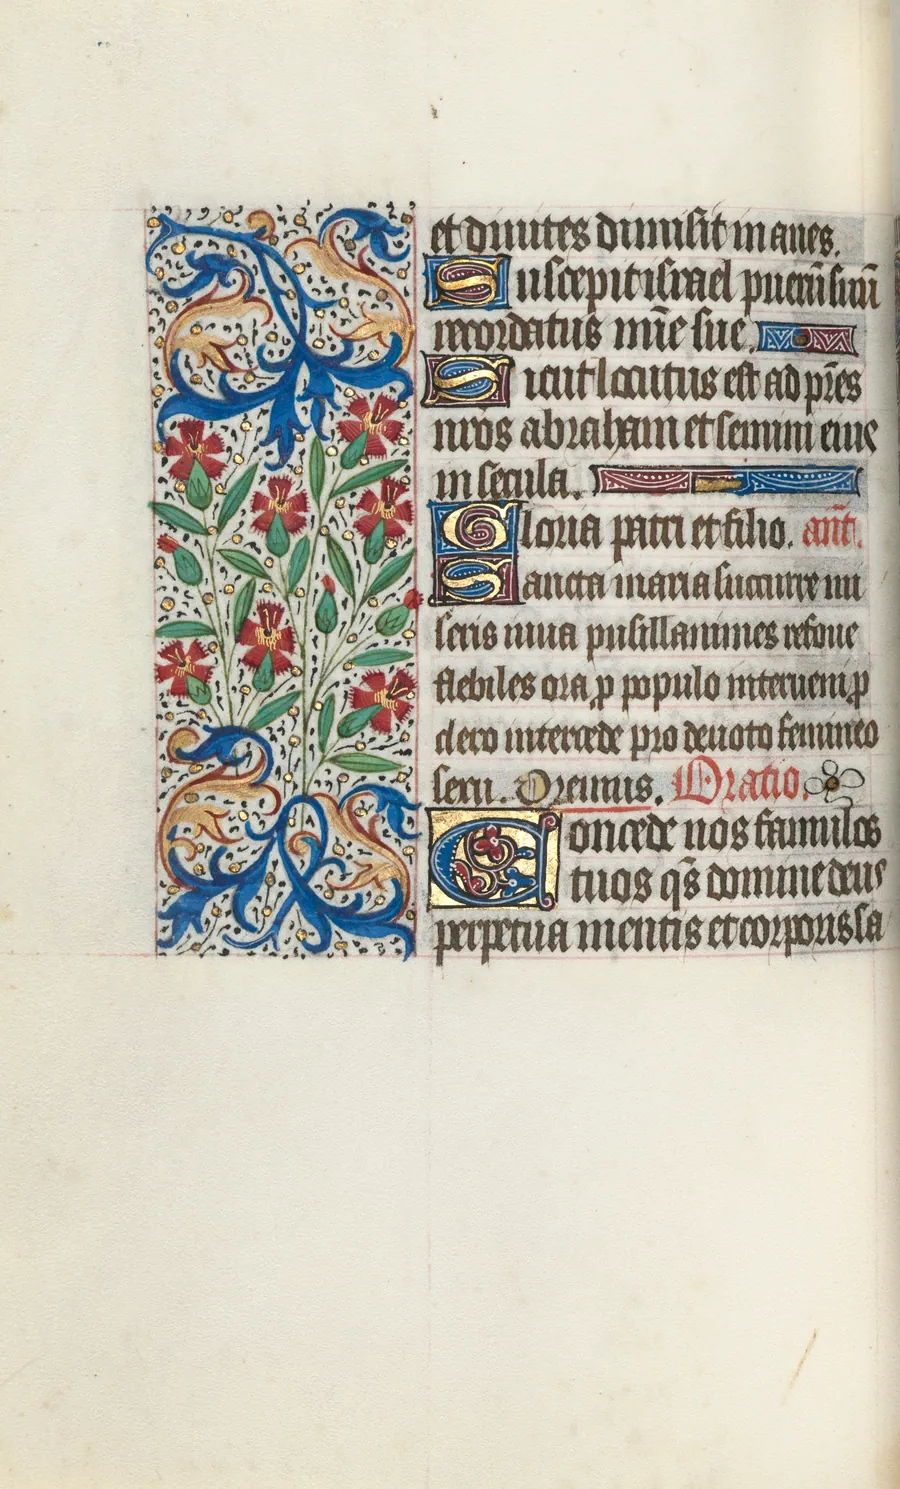 et diuites dimisit inanes.
Suscepit israel puerū suū
recordatus mīe sue.
Sicut locutus est ad pr̄es
nr̄os abraham et semini eius
in secula.
Gloria patri et filio. ant̄.
Sancta maria succurre mi
seris iuua pusillanimes refoue
flebiles ora ꝓ populo interueni ꝓ
clero intercede pro deuoto femineo
sexu. Oremus. Oratio.
Concede nos famulos
tuos qs̄ domine deus
perpetua mentis et corporis sa